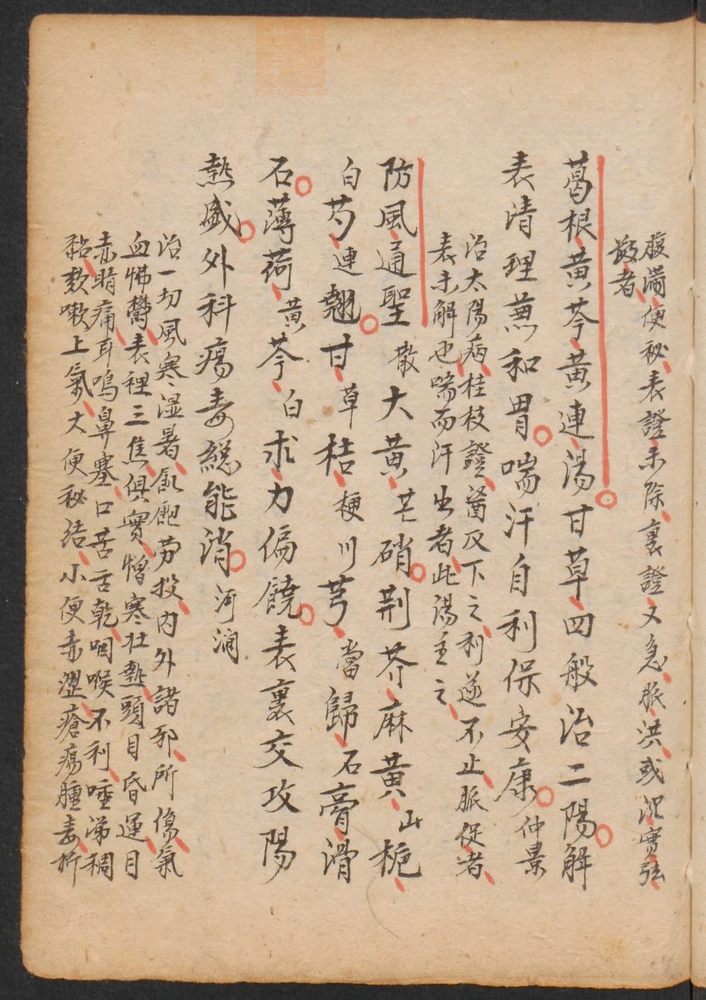 腹滿便秘表證未除裏證又急脈洪或沉實弦
數者
葛根黃芩黃連湯甘草四般治二陽解
表清理兼和胃喘汗自利保安康仲景
治太陽病桂枝證醫反下之利遂不止脈促者
表未解也喘而汗出者此湯主之
防風通聖散大黃芒硝荊芥麻黃山梔
白芍連翹甘草桔梗川芎當歸石膏滑
石薄荷黃芩白朮力偏饒表裏交攻陽
熱盛外科瘍毒總能消河澗
治一切風寒濕暑飢飽勞役內外諸邪所傷氣
血怫鬱表裡三焦俱實憎寒壯熱頭目昏運目
赤睛痛耳鳴鼻塞口苦舌乾咽喉不利唾涕稠
粘欬嗽上氣大便秘結小便赤澀瘡瘍腫毒折